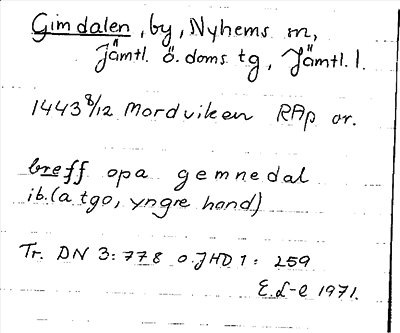 Gimdalen, by, Nyhems sn,
Jämtl. ö. doms. tg, Jämtl. l.
1443 8/12 Mordviken RAp or.
breff opa gemnedal
ib. (a tgo, yngre hand)
Tr. DN 3: 778 o. JHD 1: 259
E.L-e 1971.